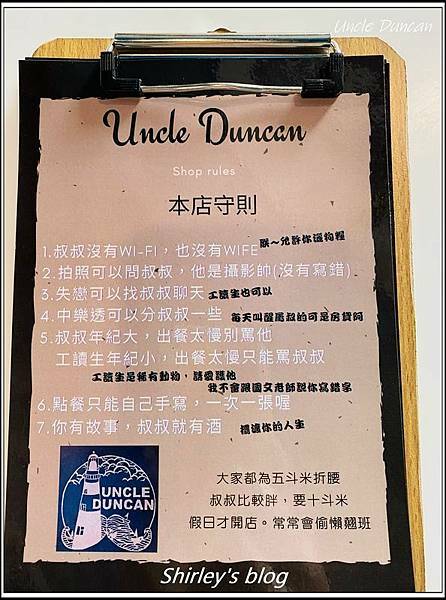 Uncle Duncan
Uncle Duncan
Shop rules
本店守則
1.叔叔沒有WI-FI，也沒有WIFE
朕～允許你逗狗糧
2.拍照可以問叔叔，他是攝影帥(沒有寫錯)
3.失戀可以找叔叔聊天 工讀生也可以
4.中樂透可以分叔叔一些 每天叫醒鳳叔的可是房貸阿
5.叔叔年紀大，出餐太慢別罵他
工讀生年紀小，出餐太慢只能罵叔叔
工讀生是稀有動物，請愛護他
我不會跟國文老師說你寫錯字
6.點餐只能自己手寫，一次一張喔
7.你有故事，叔叔就有酒 攪運你的人生
UNCLE
DUNCAN
大家都為五斗米折腰
叔叔比較胖，要十斗米
假日才開店。常常會偷懶翹班
Shirley's blog